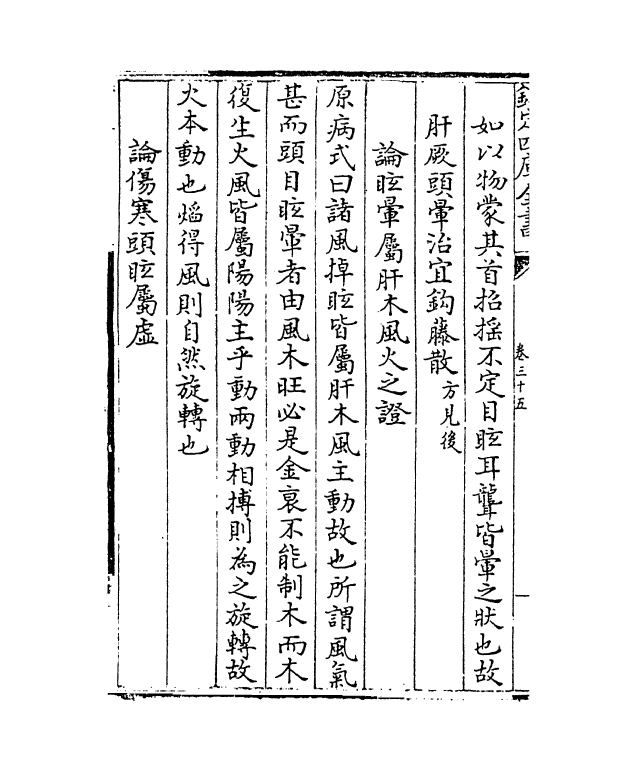 欽定四庫全書
卷三十五
如以物蒙其首招揺不定目眩耳聾皆暈之狀也故
肝厥頭暈治宜鈎藤散方見後
論眩暈屬肝木風火之證
原病式曰諸風掉眩皆屬肝木風主動故也所謂風氣
甚而頭目眩暈者由風木旺必是金衰不能制木而木
復生火風皆屬陽陽主乎動兩動相搏則為之旋轉故
火本動也焰得風則自然旋轉也
論傷寒頭眩屬虚